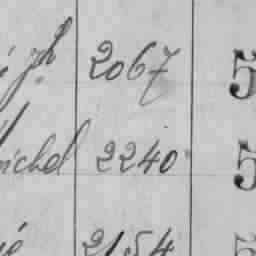 jh 2067 5
ichel 2240 5
é 2154 5